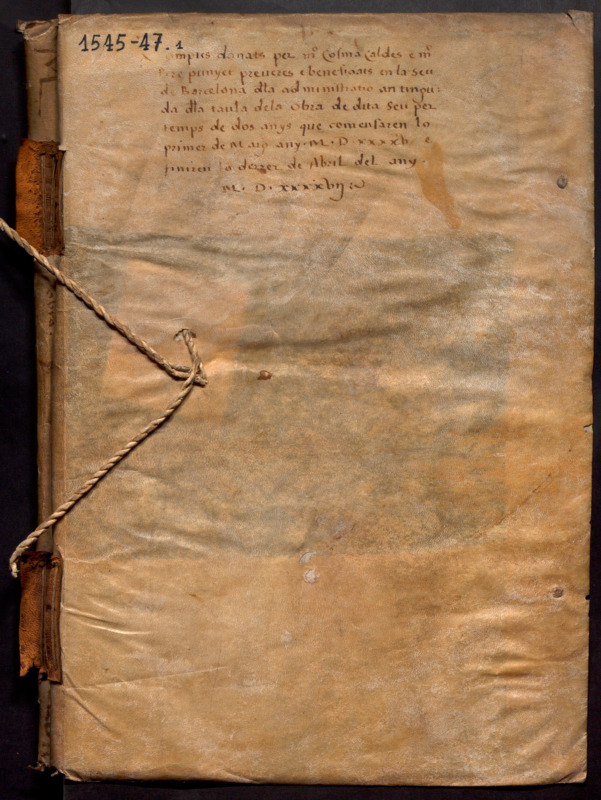 1545-47. 1
Comptes donats per mº Cosma Caldes e mº
Pere punyet preveres e beneficiats en la Seu
de Barcelona dla administratio an tingu:
da dla taula dela obra de dita Seu per
temps de dos anys que comensaren lo
primer de Maig any. M. D. xxxxv. e
finiren lo derrer de Abril del any
M. D. xxxxvij